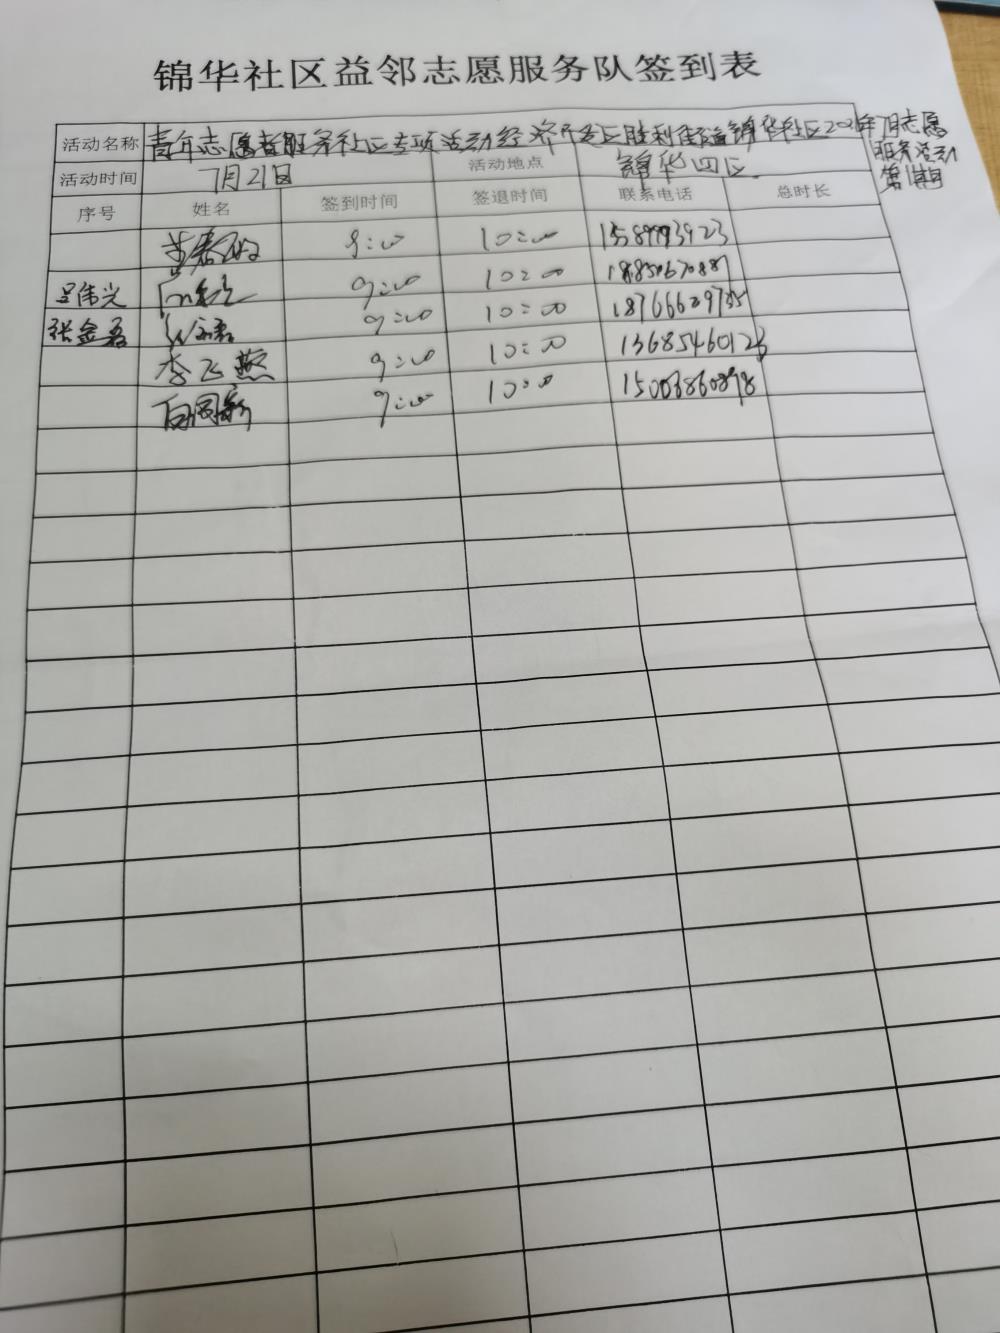 锦华社区益邻志愿服务队签到表
活动名称 青年志愿者服务社区专项活动经济开发区胜利街道锦华社区202 年7月志愿
服务活动
第1期
活动时间 7月21日 活动地点 锦华四区
序号 姓名 签到时间 签退时间 联系电话 总时长
9:00 10:00
吕伟光 9:00 10:00
张金磊 9:00 10:00 18766629735
李飞燕 9:00 10:00 13685460123
9:00 10:00 15003860898